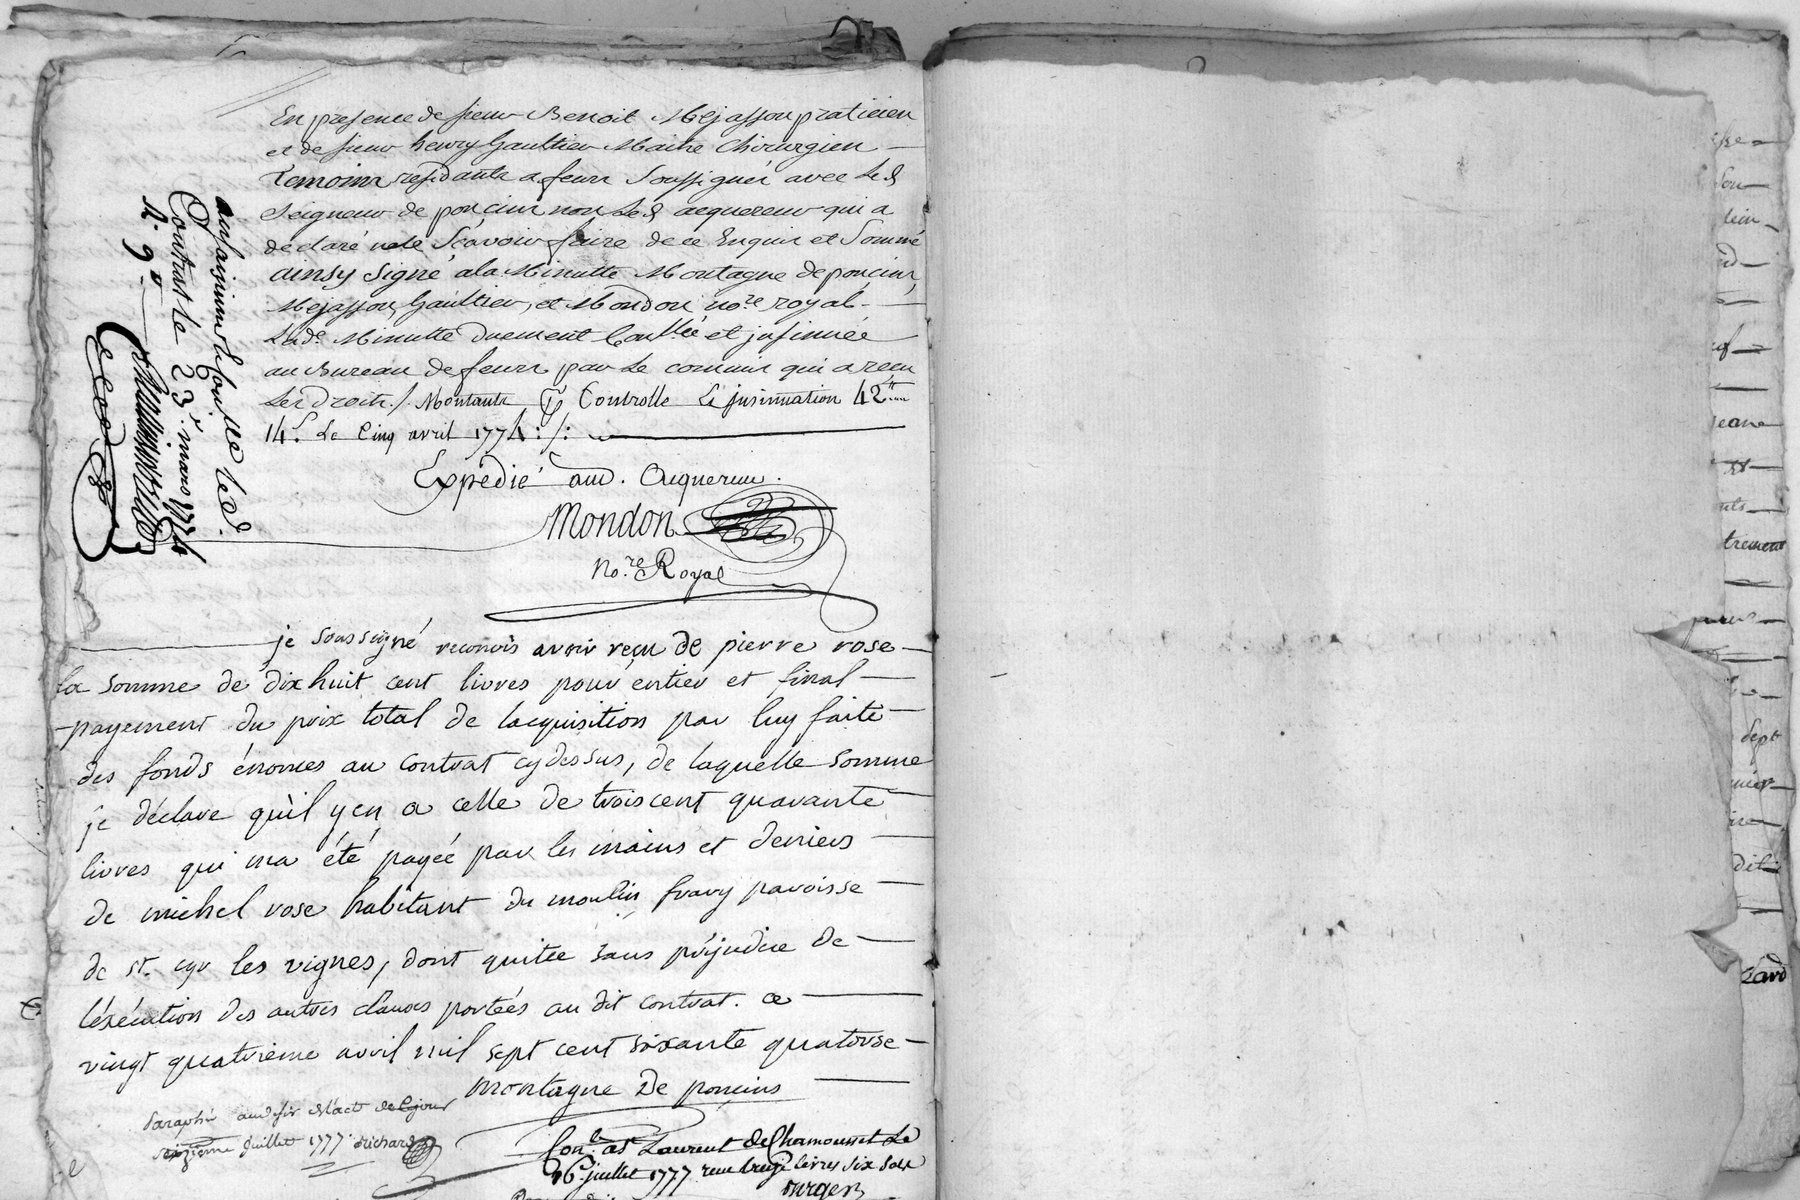 En presence de sieur Benoit Mejasson praticien
et de sieur henry Gaultier Maitre Chirurgien
Temoins residants a feurs Soussignés avec Led
Seigneur de poncins non Led acquereur qui a
declaré ne le Scavoir faire de ce Enquis et Sommé
ainsy Signé a la Minutte Montagne de poncins,
Mejasson, Gaultier, et Mondon nore. royal
Lad. Minutte duement Conllée et insinuée
au Bureau de feurs par Le commis qui a recu
Les Droits /. Montants Controlle insinuation 42lt
14s. Le Cinq avril 1774 :/:
Expédié aud. Acquereur.
Mondon
No.re Royal
Contrat le 23r mars 1774
R. 9
je soussigné reconois avoir reçu de pierre rose
la somme de dix huit cent livres pour entier et final
payement du prix total de lacquisition par luy faite
des fonds énomés au contrat cydessus, de laquelle somme
je déclare qu'il y en a celle de trois cent quarante
livres qui ma été payée par les mains et deniers
de michel rose habitant du moulin frary paroisse
de st. cyr les vignes, dont quitte sans préjudice de
l'éxécution des autres clauses portées au dit contrat. ce
vingt quatrieme avril mil sept cent soixante quatorse
montagne De poncins
Paraphé au desir de l'acte de ce jour
seizieme Juillet 1777 Richard
Con.lé a St Laurent de Chamousset Le
16 juillet 1777 recu livres six sols